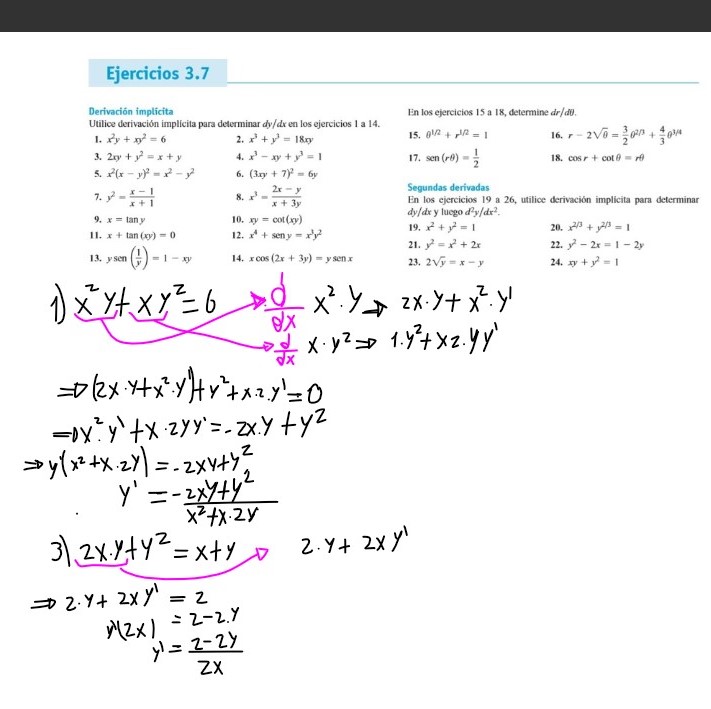 Ejercicios 3.7
Derivación implícita
Utilice derivación implícita para determinar dy/dx en los ejercicios 1 a 14.
1. x²y + xy² = 6
2. x³ + y³ = 18xy
3. 2xy + y² = x + y
4. x³ − xy + y³ = 1
5. x²(x − y)² = x² − y²
6. (3xy + 7)² = 6y
7. y² = (x − 1)/(x + 1)
8. x³ = (2x − y)/(x + 3y)
9. x = tan y
10. xy = cot(xy)
11. x + tan (xy) = 0
12. x⁴ + sen y = x³y²
13. y sen (1/y) = 1 − xy
14. x cos (2x + 3y) = y sen x
En los ejercicios 15 a 18, determine dr/dθ.
15. θ^1/2 + r^1/2 = 1
16. r − 2√θ = 3/2 θ^2/3 + 4/3 θ^3/4
17. sen (rθ) = 1/2
18. cos r + cot θ = rθ
Segundas derivadas
En los ejercicios 19 a 26, utilice derivación implícita para determinar
dy/dx y luego d²y/dx².
19. x² + y² = 1
20. x^2/3 + y^2/3 = 1
21. y² = x² + 2x
22. y² − 2x = 1 − 2y
23. 2√y = x − y
24. xy + y² = 1
1) x²y + xy² = 6
d/dx x²·y ⇒ 2x·y + x²·y'
d/dx x·y² ⇒ 1·y² + x2·yy'
⇒ (2x·y + x²·y') + y² + x·2·y' = 0
⇒ x²·y' + x·2yy' = -2x·y + y²
⇒ y'(x² + x·2y) = -2xy + y²
y' = (-2xy + y²)/(x² + x·2y)
3) 2x·y + y² = x + y → 2·y + 2xy'
⇒ 2·y + 2xy' = 2
y'(2x) = 2 - 2·y
y' = (2 - 2y)/2x